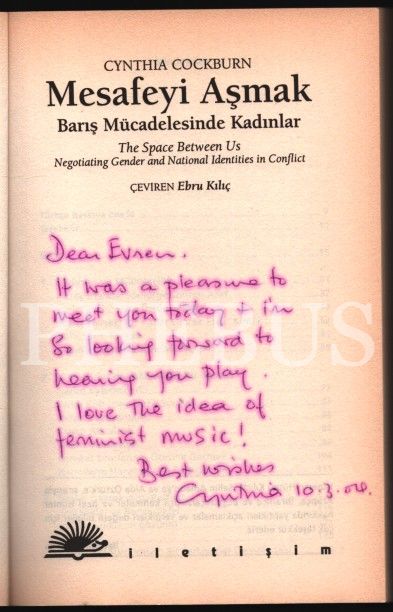 CYNTHIA COCKBURN
Mesafeyi Aşmak
Barış Mücadelesinde Kadınlar
The Space Between Us
Negotiating Gender and National Identities in Conflict
ÇEVİREN Ebru Kılıç
Dear Evren.
It was a pleasure to
meet you today & im
so looking forward to
hearing you play.
I love the idea of
feminist music!
Best wishes
Cynthia 10.3.04.
PHEBUS
iletişim